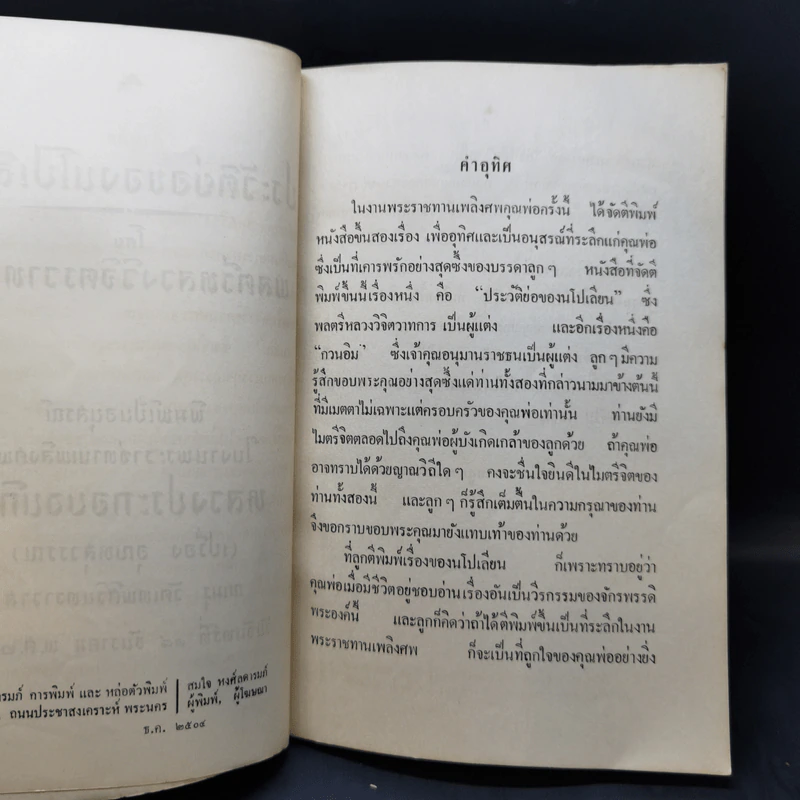 รมภ์ การพิมพ์ และ หล่อตัวพิมพ์
ถนนประชาสงเคราะห์ พระนคร
สมใจ หงศ์ลดารมภ์
ผู้พิมพ์, ผู้โฆษณา
ธ.ค. ๒๕๐๔
คำอุทิศ
ในงานพระราชทานเพลิงศพคุณพ่อครั้งนี้ ได้จัดตีพิมพ์
หนังสือขึ้นสองเรื่อง เพื่ออุทิศและเป็นอนุสรณ์ที่ระลึกแก่คุณพ่อ
ซึ่งเป็นที่เคารพรักอย่างสุดซึ้งของบรรดาลูก ๆ หนังสือที่จัดตี
พิมพ์ขึ้นนี้เรื่องหนึ่ง คือ “ประวัติย่อของนโปเลียน” ซึ่ง
พลตรีหลวงวิจิตวาทการ เป็นผู้แต่ง และอีกเรื่องหนึ่งคือ
“กวนอิม” ซึ่งเจ้าคุณอนุมานราชธนเป็นผู้แต่ง ลูก ๆ มีความ
รู้สึกขอบพระคุณอย่างสุดซึ้งแด่ท่านทั้งสองที่กล่าวนามมาข้างต้นนี้
ที่มีเมตตาไม่เฉพาะแต่ครอบครัวของคุณพ่อเท่านั้น ท่านยังมี
ไมตรีจิตตลอดไปถึงคุณพ่อผู้บังเกิดเกล้าของลูกด้วย ถ้าคุณพ่อ
อาจทราบได้ด้วยญาณวิถีใด ๆ คงจะชื่นใจยินดีในไมตรีจิตของ
ท่านทั้งสองนี้ และลูก ๆ ก็รู้สึกเต็มตื้นในความกรุณาของท่าน
จึงขอกราบขอบพระคุณมายังแทบเท้าของท่านด้วย
ที่ลูกตีพิมพ์เรื่องของนโปเลียน ก็เพราะทราบอยู่ว่า
คุณพ่อเมื่อมีชีวิตอยู่ชอบอ่านเรื่องอันเป็นวีรกรรมของจักรพรรดิ
พระองค์นี้ และลูกก็คิดว่าถ้าได้ตีพิมพ์ขึ้นเป็นที่ระลึกในงาน
พระราชทานเพลิงศพ ก็จะเป็นที่ถูกใจของคุณพ่ออย่างยิ่ง